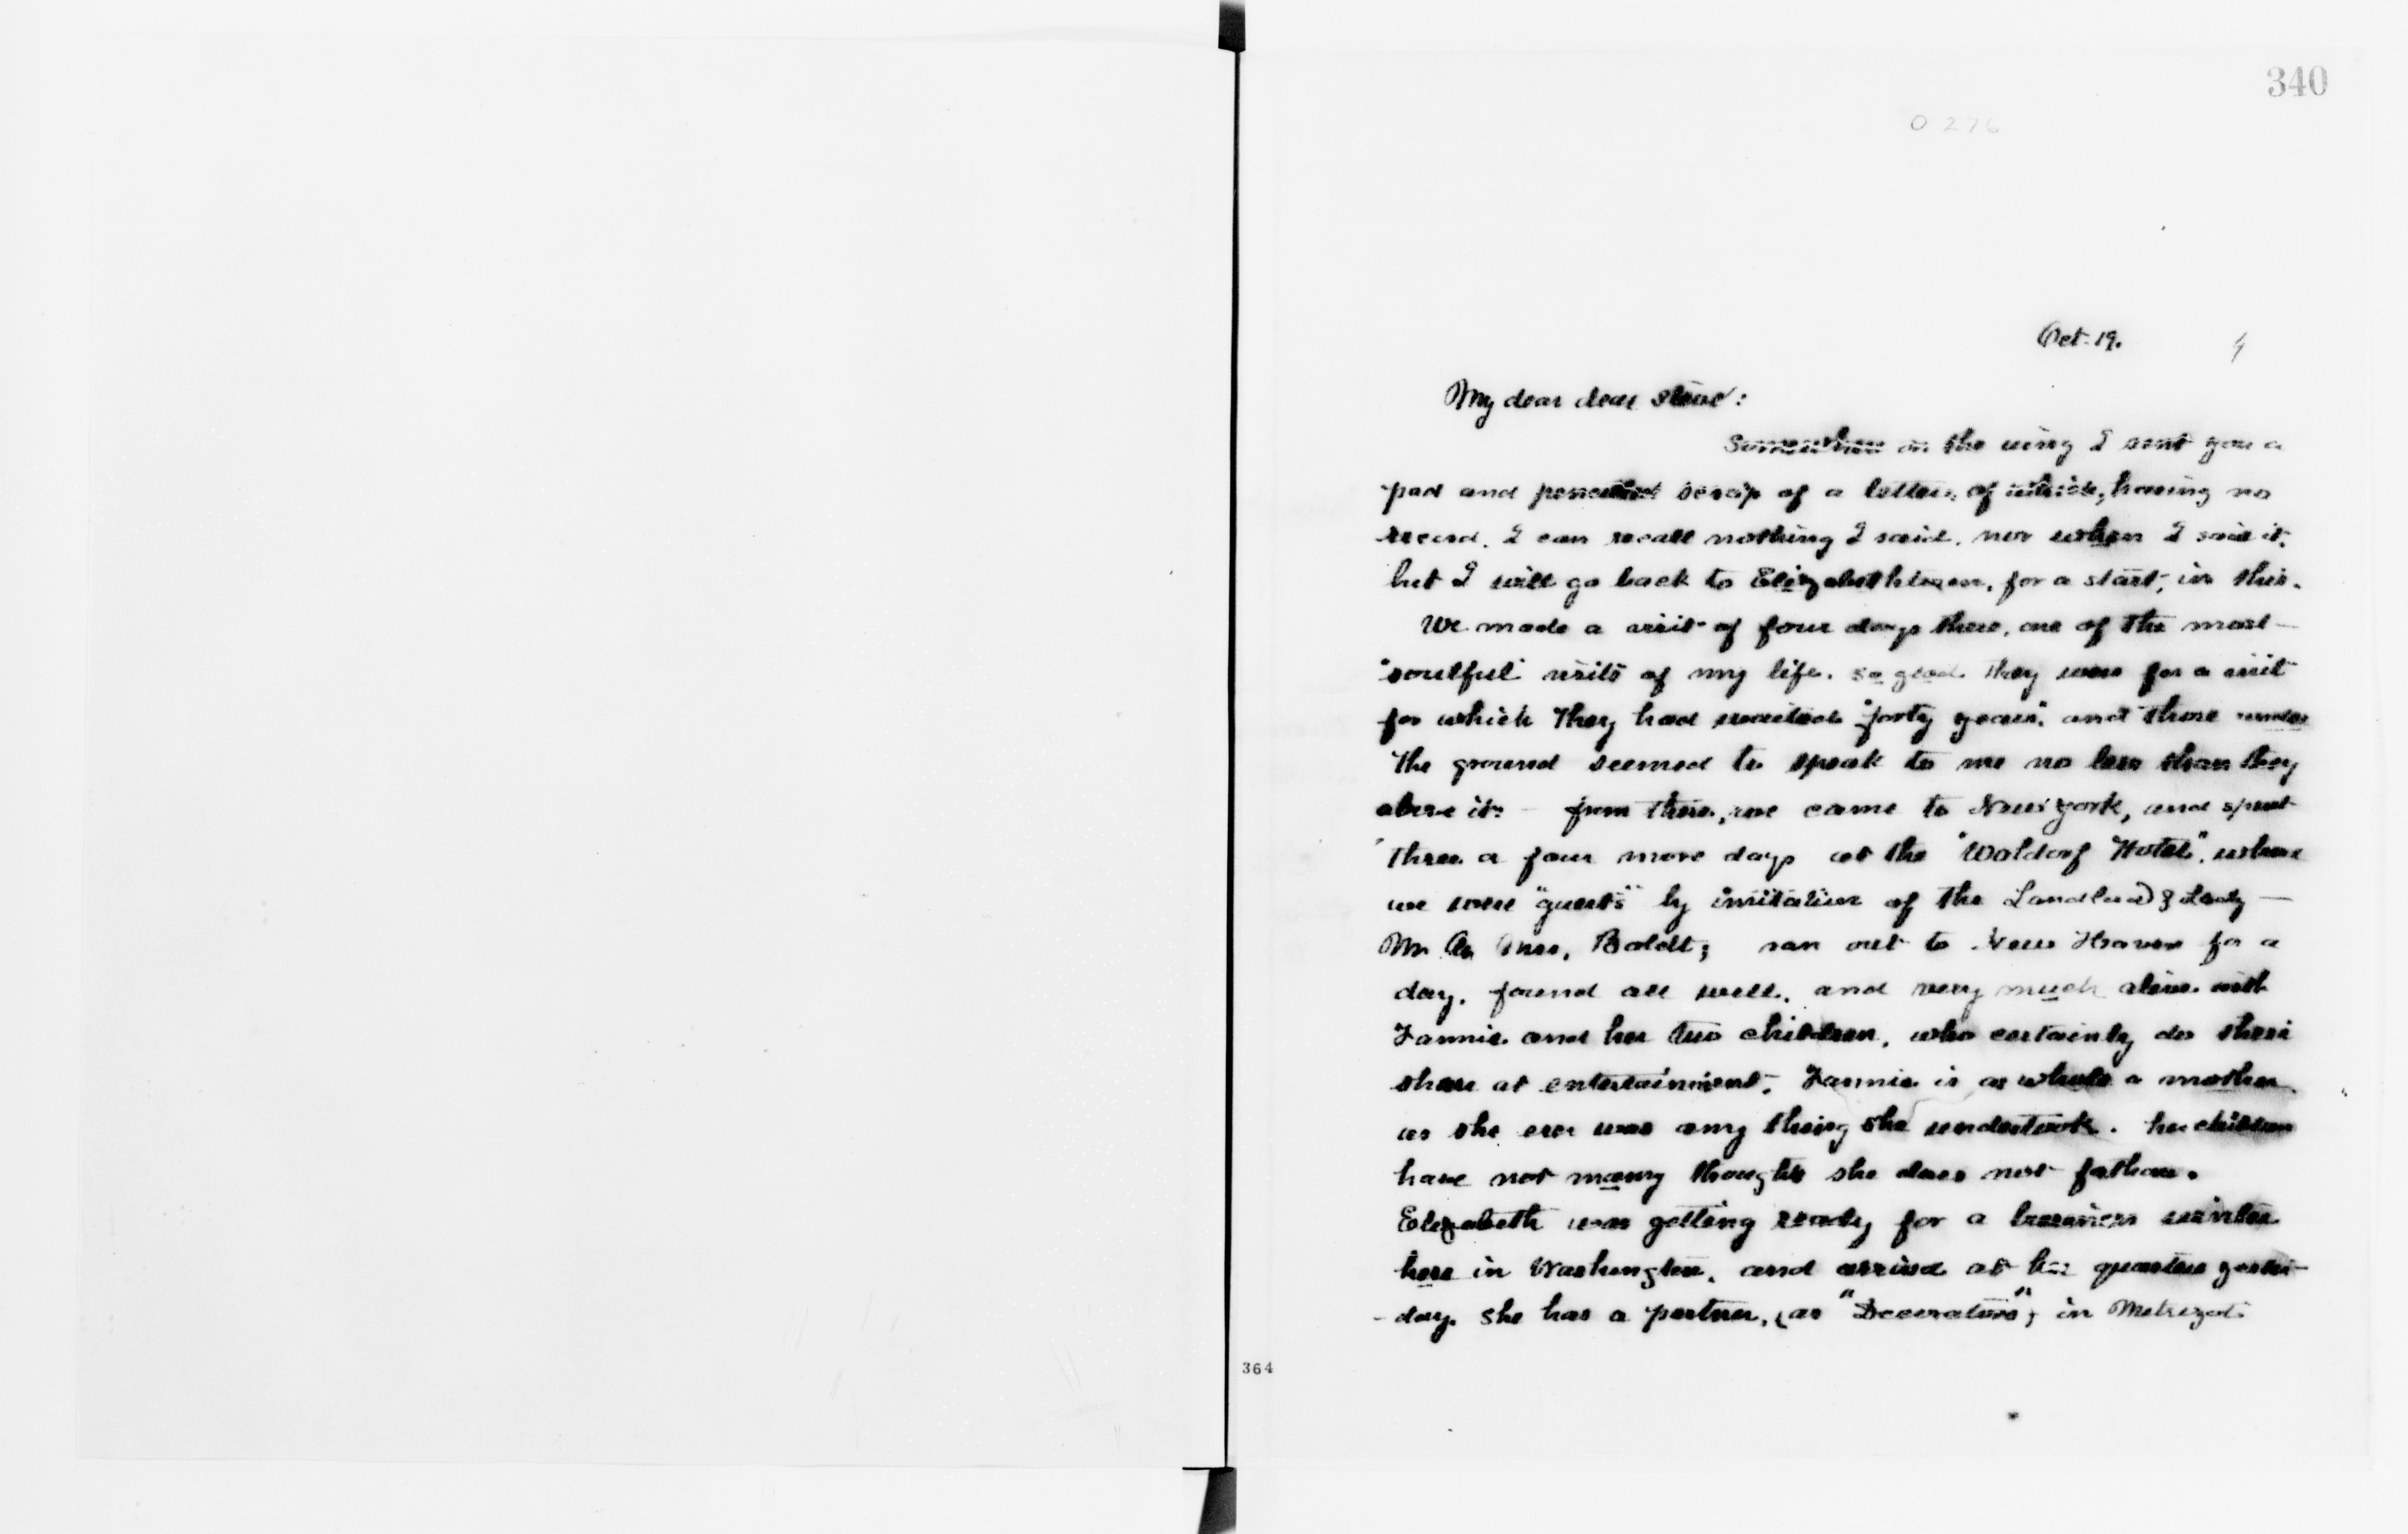 340
0 276
Oct. 19.
My dear dear Steve:
Somewhere on the wing I sent you a
pad and penciled scrap of a letter, of which, having no
record, I can recall nothing I said, nor when I said it,
but I will go back to Elizabethtown, for a start, in this.
We made a visit of four days there, one of the most
"soulful" visits of my life. so glad they were for a visit
for which they had waited "forty years", and those under
the ground seemed to speak to me no less than they
above it. – from there, we came to New York, and spent
three or four more days at the "Waldorf Hotel", where
we were "guests" by invitation of the Landlord & Lady —
Mr & Mrs. Boldt; ran out to New Haven for a
day, found all well, and very much alive with
Fannie and her two children, who certainly do their
share at entertainment. Fannie is as whole a mother
as she ever was any thing she undertook. her children
have not many thoughts she does not fathom.
Elizabeth was getting ready for a business winter
here in Washington, and arrived at her quarters yester-
-day. She has a partner, (as "Decorators") in
364